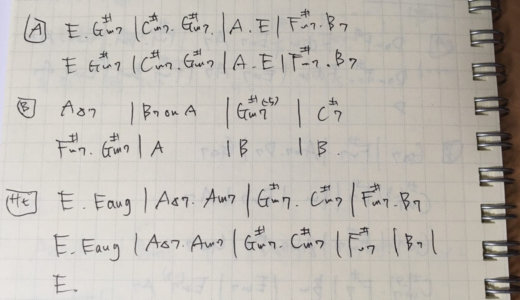 A E . G#m7 | C#m7 . G#m7 | A . E | F#m7 . B7
E G#m7 | C#m7 . G#m7 | A . E | F#m7 . B7
B A△7 | B7 on A | G#m7(-5) | C#7
F#m7 . G#m7 | A | B | B
Ht E . Eaug | A△7 . Am7 | G#m7 . C#m7 | F#m7 . B7
E . Eaug | A△7 . Am7 | G#m7 . C#m7 | F#m7 | B7 |
E .